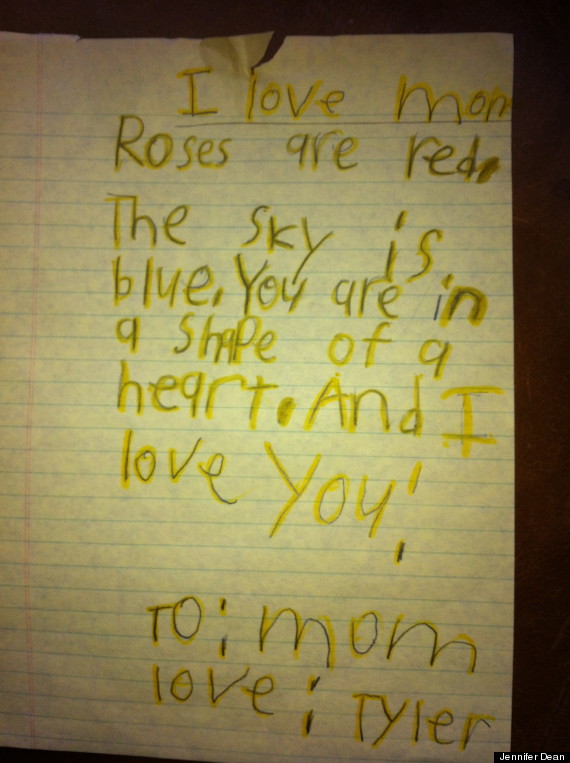 I love mom
Roses are red.
The sky is
blue. You are in
a shape of a
heart. And I
love You!
To: mom
love: Tyler
Jennifer Dean